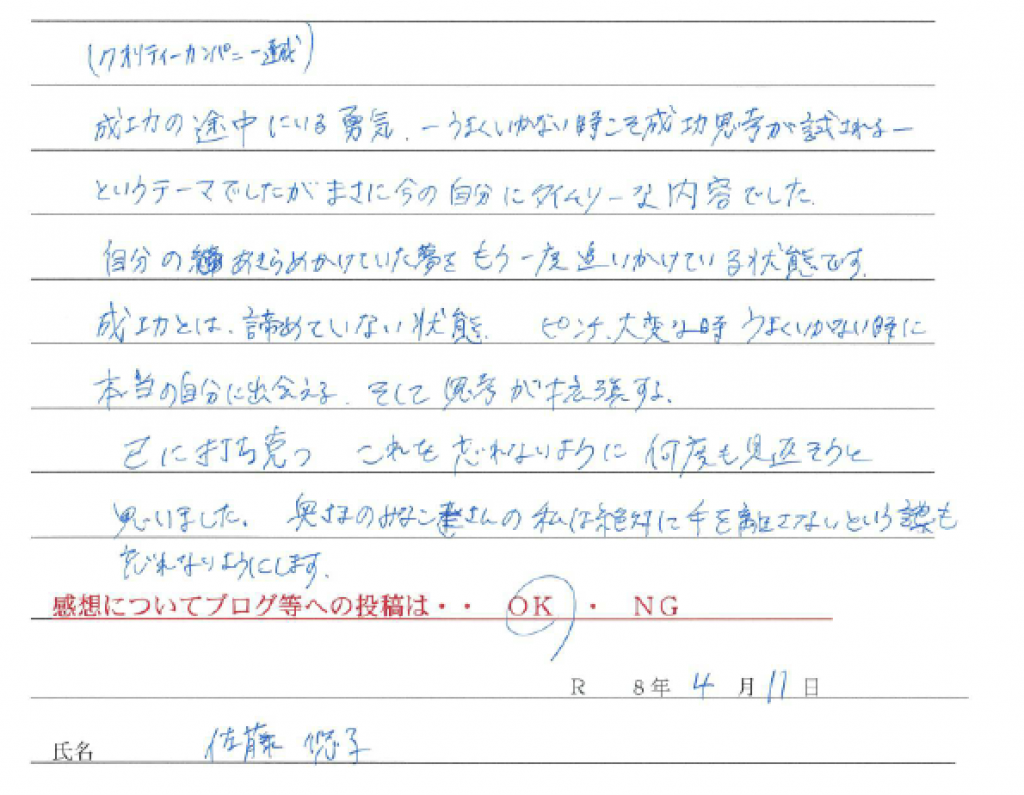 (クオリティーカンパニー通成)
成功の途中にいる勇気。ーうまくいかない時こそ成功思考が試されるー
というテーマでしたがまさに今の自分にタイムリーな内容でした。
自分のあきらめかけていた夢をもう一度追いかけている状態です。
成功とは、諦めていない状態。 ピンチ、大変な時 うまくいかない時に
本当の自分に出会える。そして思考が拡張する。
己に打ち克つ これを忘れないように何度も見返そうと
思いました。 奥さまのみなこさんの私は絶対に手を離さないという言葉も
忘れないようにします。
感想についてブログ等への投稿は・・ OK ・ NG
R 8年 4月 11日
氏名 佐藤 悠子